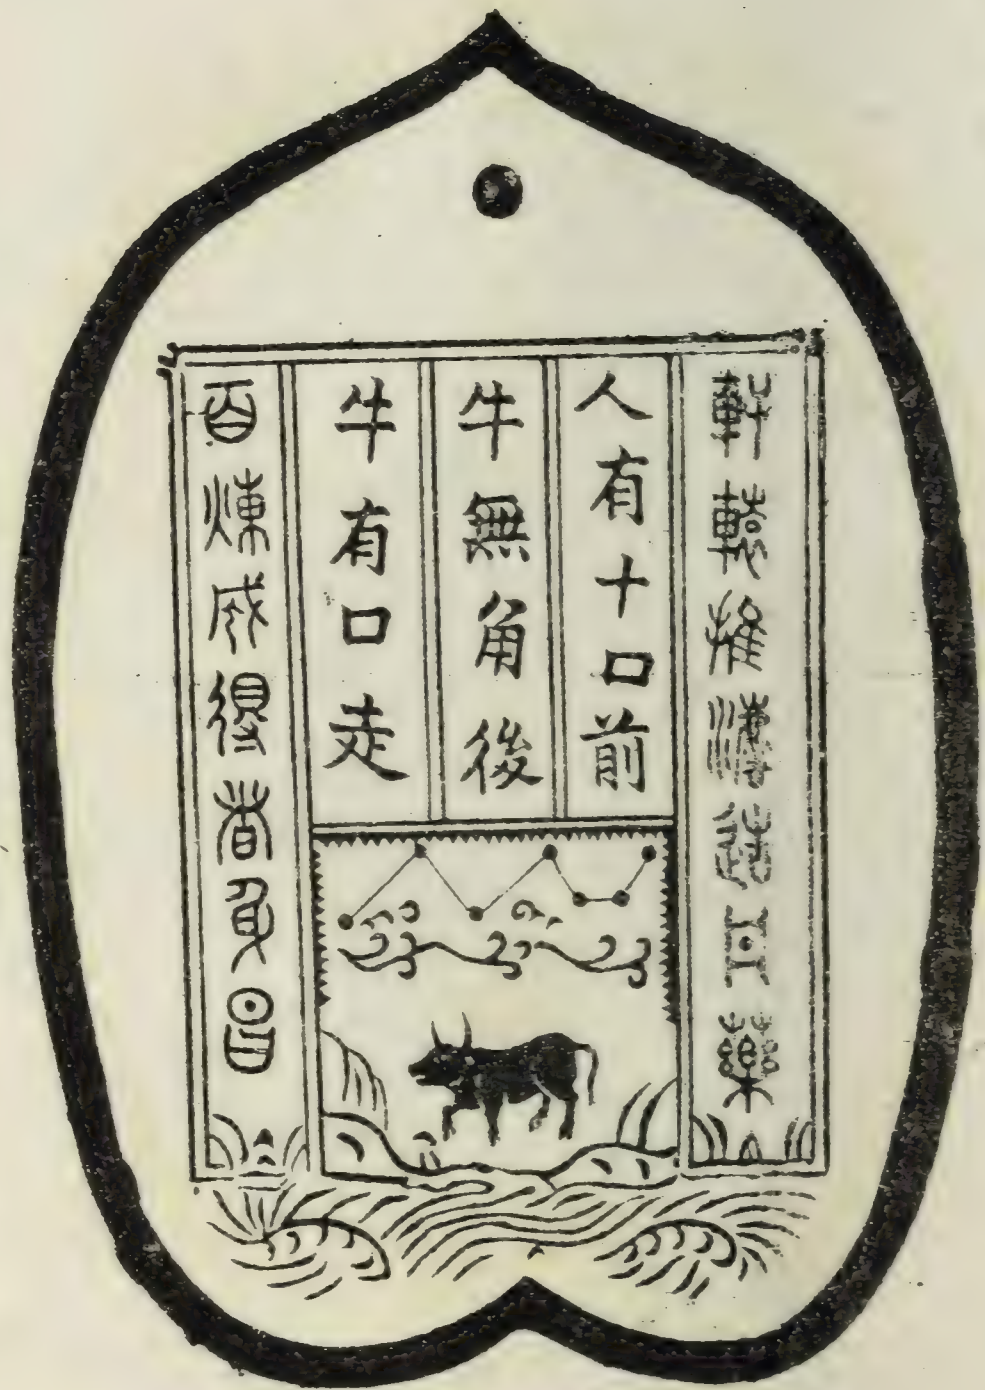 軒轅維灋造丹藥
人有十口前
牛無角後
牛有口走
百煉成得者身昌